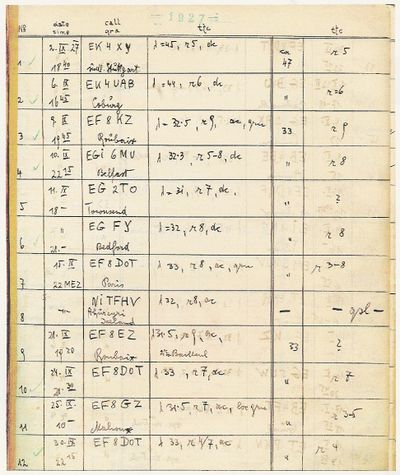 =1927=
NB date time call qra t&c t&c
2. IX 27 EK4XY λ=45, r5, dc ca 47 r5
1 18 40 Stuttgart
6. IX EK4UAB λ=44, r6, dc " r=6
2 16 45 Coburg
9. IX EF8KZ λ=32.5, r9, ac, 33 r9
3 19 45 Roubaix
10. IX EGi6MU λ 32.3, r5-8, dc " r8
4 22 25 Belfast
11. IX EG2TO λ=31, r7, dc, " ?
5 18 — Townsend
" EG FY λ=32, r8, dc, " r8
6 20 — Bedford
15. IX EF8DOT λ 33, r8, ac, " r3-8
7 22 MEZ Paris
NiTFHV λ32, r8, ac — — qpl —
8
EF8EZ λ31.5, r9, ac, 33 ?
9 19 20 Roubaix
24. IX EF8DOT λ 33, r7, dc " r7
10
25. IX EF8GZ λ 31.5, r7, ac, " r3-5
11 10 —
30. IX EF8DOT λ 33, r4/7, ac " r4
12 22 15